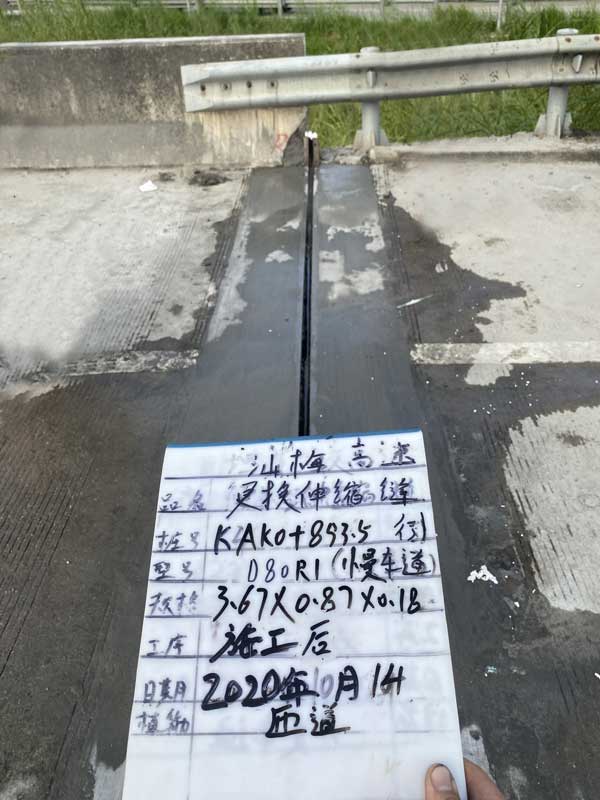 汕梅高速
品名 更换伸缩缝
桩号 KAK0+893.5
型号 D80R1(慢车道)
规格 3.67X0.87X0.18
工序 施工后
日期 2020年10月14
匝道